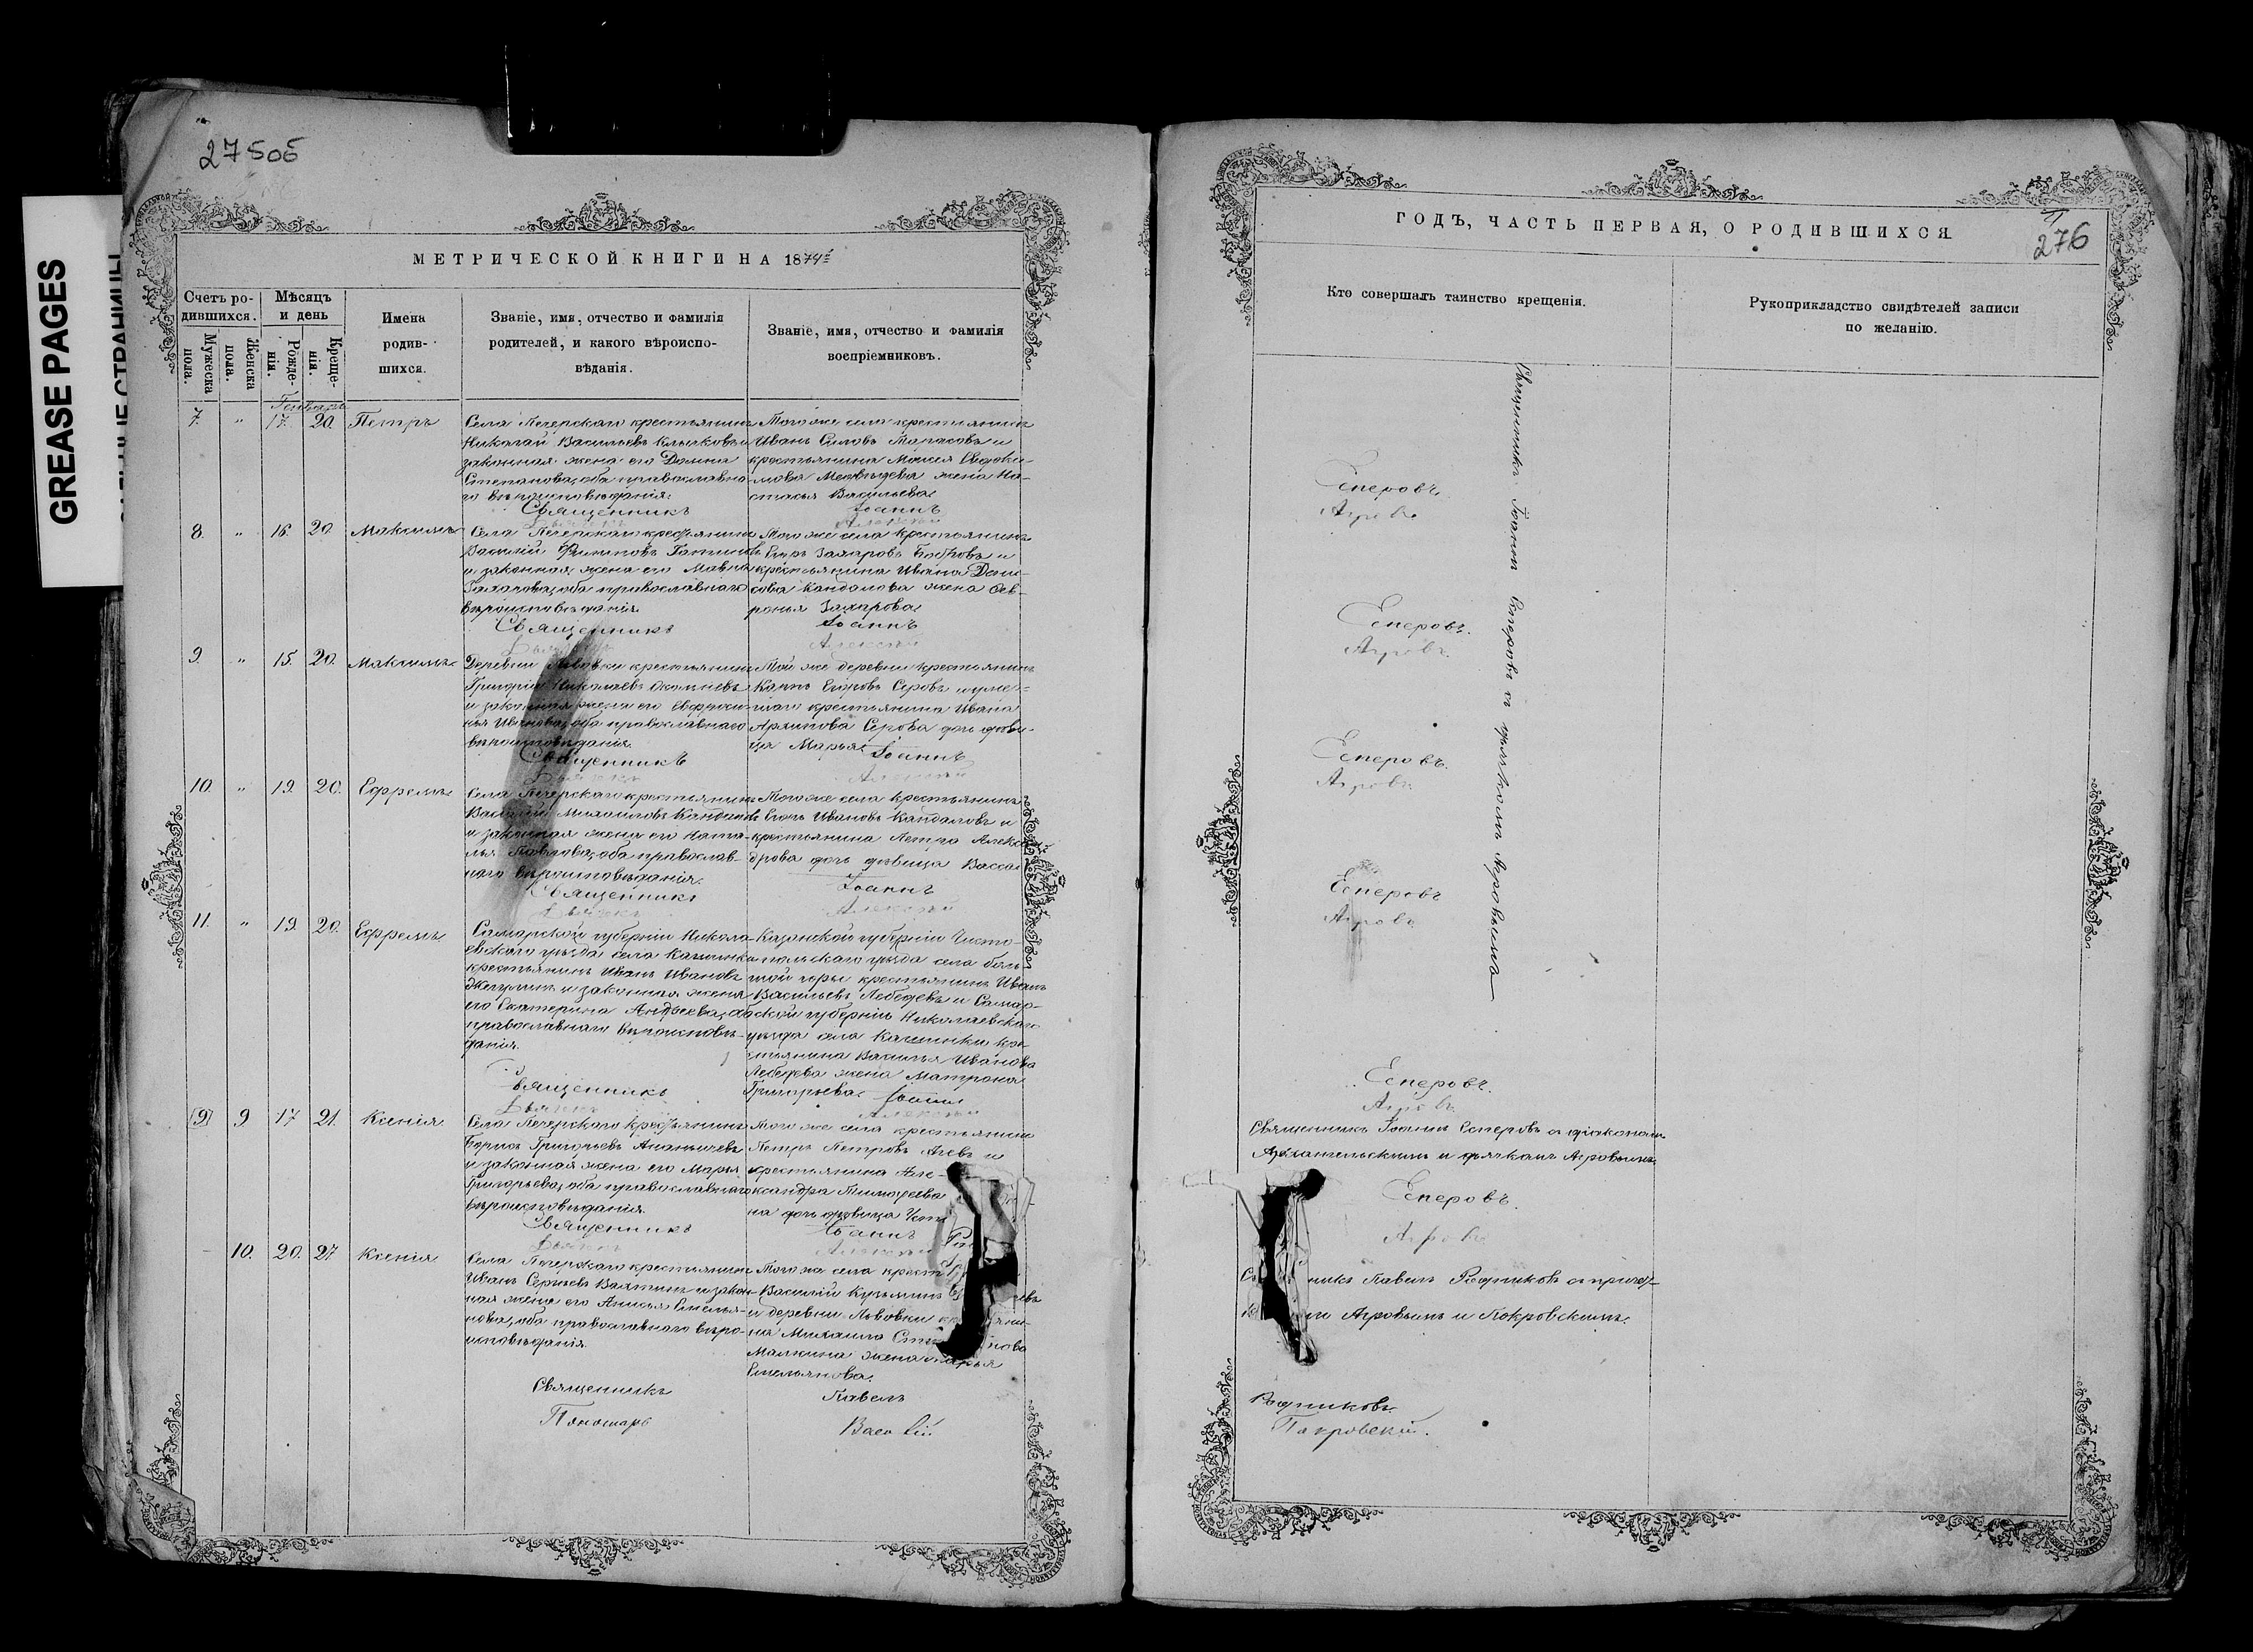 27505
GREASE PAGES
МЕТРИЧЕСКОЙ КНИГИ НА 1874
Счетъ ро-
дившихся.
Мужеска
пола.
Женска
пола.
Мѣсяцъ
и день
Рожде-
нія.
Креще-
нія.
Имена
родив-
шихся.
Званіе, имя, отчество и фамилія
родителей, и какого вѣроиспо-
вѣданія.
Званіе, имя, отчество и фамилія
воспріемниковъ.
Генварь
7. " 17. 20. Петръ
Села Печерскаго крестьянинъ
Николай Васильевъ и
законная жена его Домна
Степанова, оба православна-
го вѣроисповѣданія.
Того же села крестьянинъ
Иванъ и
крестьянина Моисея Евдоки-
мова Медвѣдева жена На-
стасья Васильева
Священникъ Іоаннъ
8. " 16. 20. Максимъ
Села Печерскаго крестьянинъ
Василій Филиповъ
и законная жена его Мавра
оба православнаго
вѣроисповѣданія.
Того же села крестьянинъ
Егоръ Захаровъ Бобровъ и
крестьянина Ивана Дени-
сова Кандалова жена Фев-
ронья Захарова
Священникъ Іоаннъ
Дьячекъ Алексѣй
9. " 15. 20. Максимъ
Деревни Львовки крестьянинъ
Григорій Николаевъ
и законная жена его Евфроси-
нья Иванова, оба православнаго
вѣроисповѣданія.
Той же деревни крестьянинъ
Карпъ Егоровъ Серовъ и умер-
шаго крестьянина Ивана
Архипова Серова дочь дѣви-
ца Марья
Священникъ Іоаннъ
Дьячекъ Алексѣй
10. " 19. 20. Ефремъ
Села Печерскаго крестьянинъ
Василій Михаиловъ Кандаловъ
и законная жена его Ната-
лья Павлова, оба православ-
наго вѣроисповѣданія.
Того же села крестьянинъ
Егоръ Ивановъ Кандаловъ и
крестьянина Петра Алексан-
дрова дочь дѣвица Васса
Священникъ Іоаннъ
Дьячекъ Алексѣй
11. " 19. 20. Ефремъ
Самарской губерніи Никола-
евскаго уѣзда села Каменки
крестьянинъ Иванъ Ивановъ
и законная жена
его Екатерина Андреева, оба
православнаго вѣроисповѣ-
данія.
Казанской губерніи Чисто-
польскаго уѣзда села Боль-
шой горы крестьянинъ Иванъ
Васильевъ Лебедевъ и Самар-
ской губерніи Николаевскаго
уѣзда села Каменки кре-
стьянина Василья Иванова
Лебедева жена Матрона
Григорьева
Священникъ Іоаннъ
Дьячекъ Алексѣй
(9) 9 17 21. Ксенія
Села Печерскаго крестьянинъ
Борисъ Григорьевъ Ананьичевъ
и законная жена его Марья
Григорьева, оба православнаго
вѣроисповѣданія.
Того же села крестьянинъ
Петръ Петровъ и
крестьянина Але-
ксандра Тимофеева
на дочь дѣвица
Священникъ Іоаннъ
Дьячекъ Алексѣй
10. 20. 27 Ксенія
Села Печерскаго крестьянинъ
Иванъ Сергѣевъ и закон-
ная жена его Анисья Емелья-
нова, оба православнаго вѣро-
исповѣданія.
Того же села крест
Василій Кузьминъ
и деревни Львовки
на Михаила
Малкина жена Марья
Емельянова.
Священникъ Павелъ
Пономарь Василій
ГОДЪ, ЧАСТЬ ПЕРВАЯ, О РОДИВШИХСЯ
276
Кто совершалъ таинство крещенія.
Рукоприкладство свидѣтелей записи
по желанію.
Священникъ Іоаннъ Есперовъ съ дьячкомъ Агровымъ
Есперовъ.
Агровъ
Есперовъ.
Агровъ.
Есперовъ.
Агровъ.
Есперовъ
Агровъ
Есперовъ.
Агровъ.
Священникъ Іоаннъ Есперовъ съ діакономъ
Архангельскимъ и дьячкомъ Агровымъ
Есперовъ.
Агровъ
никъ Павелъ Родниковъ съ причет-
ми Агровымъ и Покровскимъ.
Родниковъ
Покровскій.